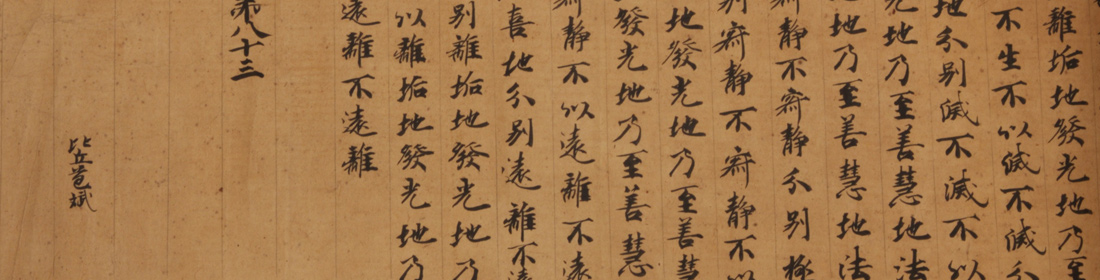 離垢地發光地乃至
不生不以滅不滅分
地分別滅不滅不以
光地乃至善慧地法
地乃至善慧地法
静不寂静分別極
寂静不寂静不以
地發光地乃至善慧
發光地乃至善慧
静不以遠離不遠
喜地分別遠離不遠
別離垢地發光地乃
以離垢地發光地乃
遠離不遠離
第八十三
比丘道斌